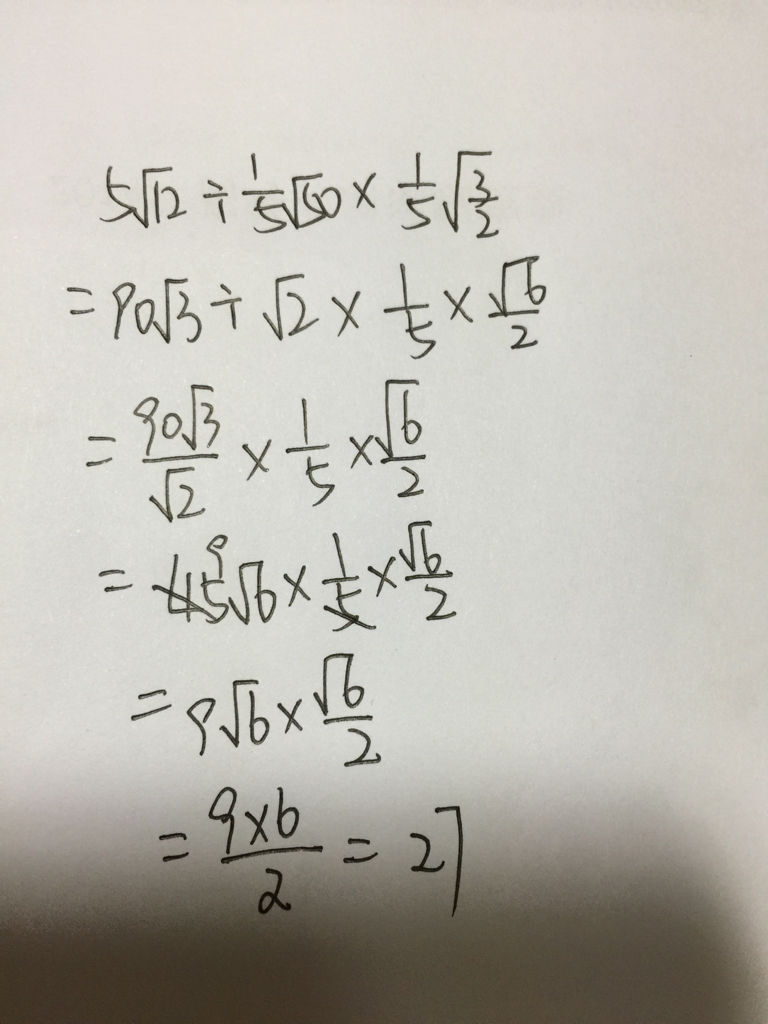 5√12 ÷ 1/5√50 × 1/5√(3/2)
= 90√3 ÷ √2 × 1/5 × √6/2
= 90√3/√2 × 1/5 × √6/2
= 45 9√6 × 1/5 × √6/2
= 9√6 × √6/2
= 9×6/2 = 27